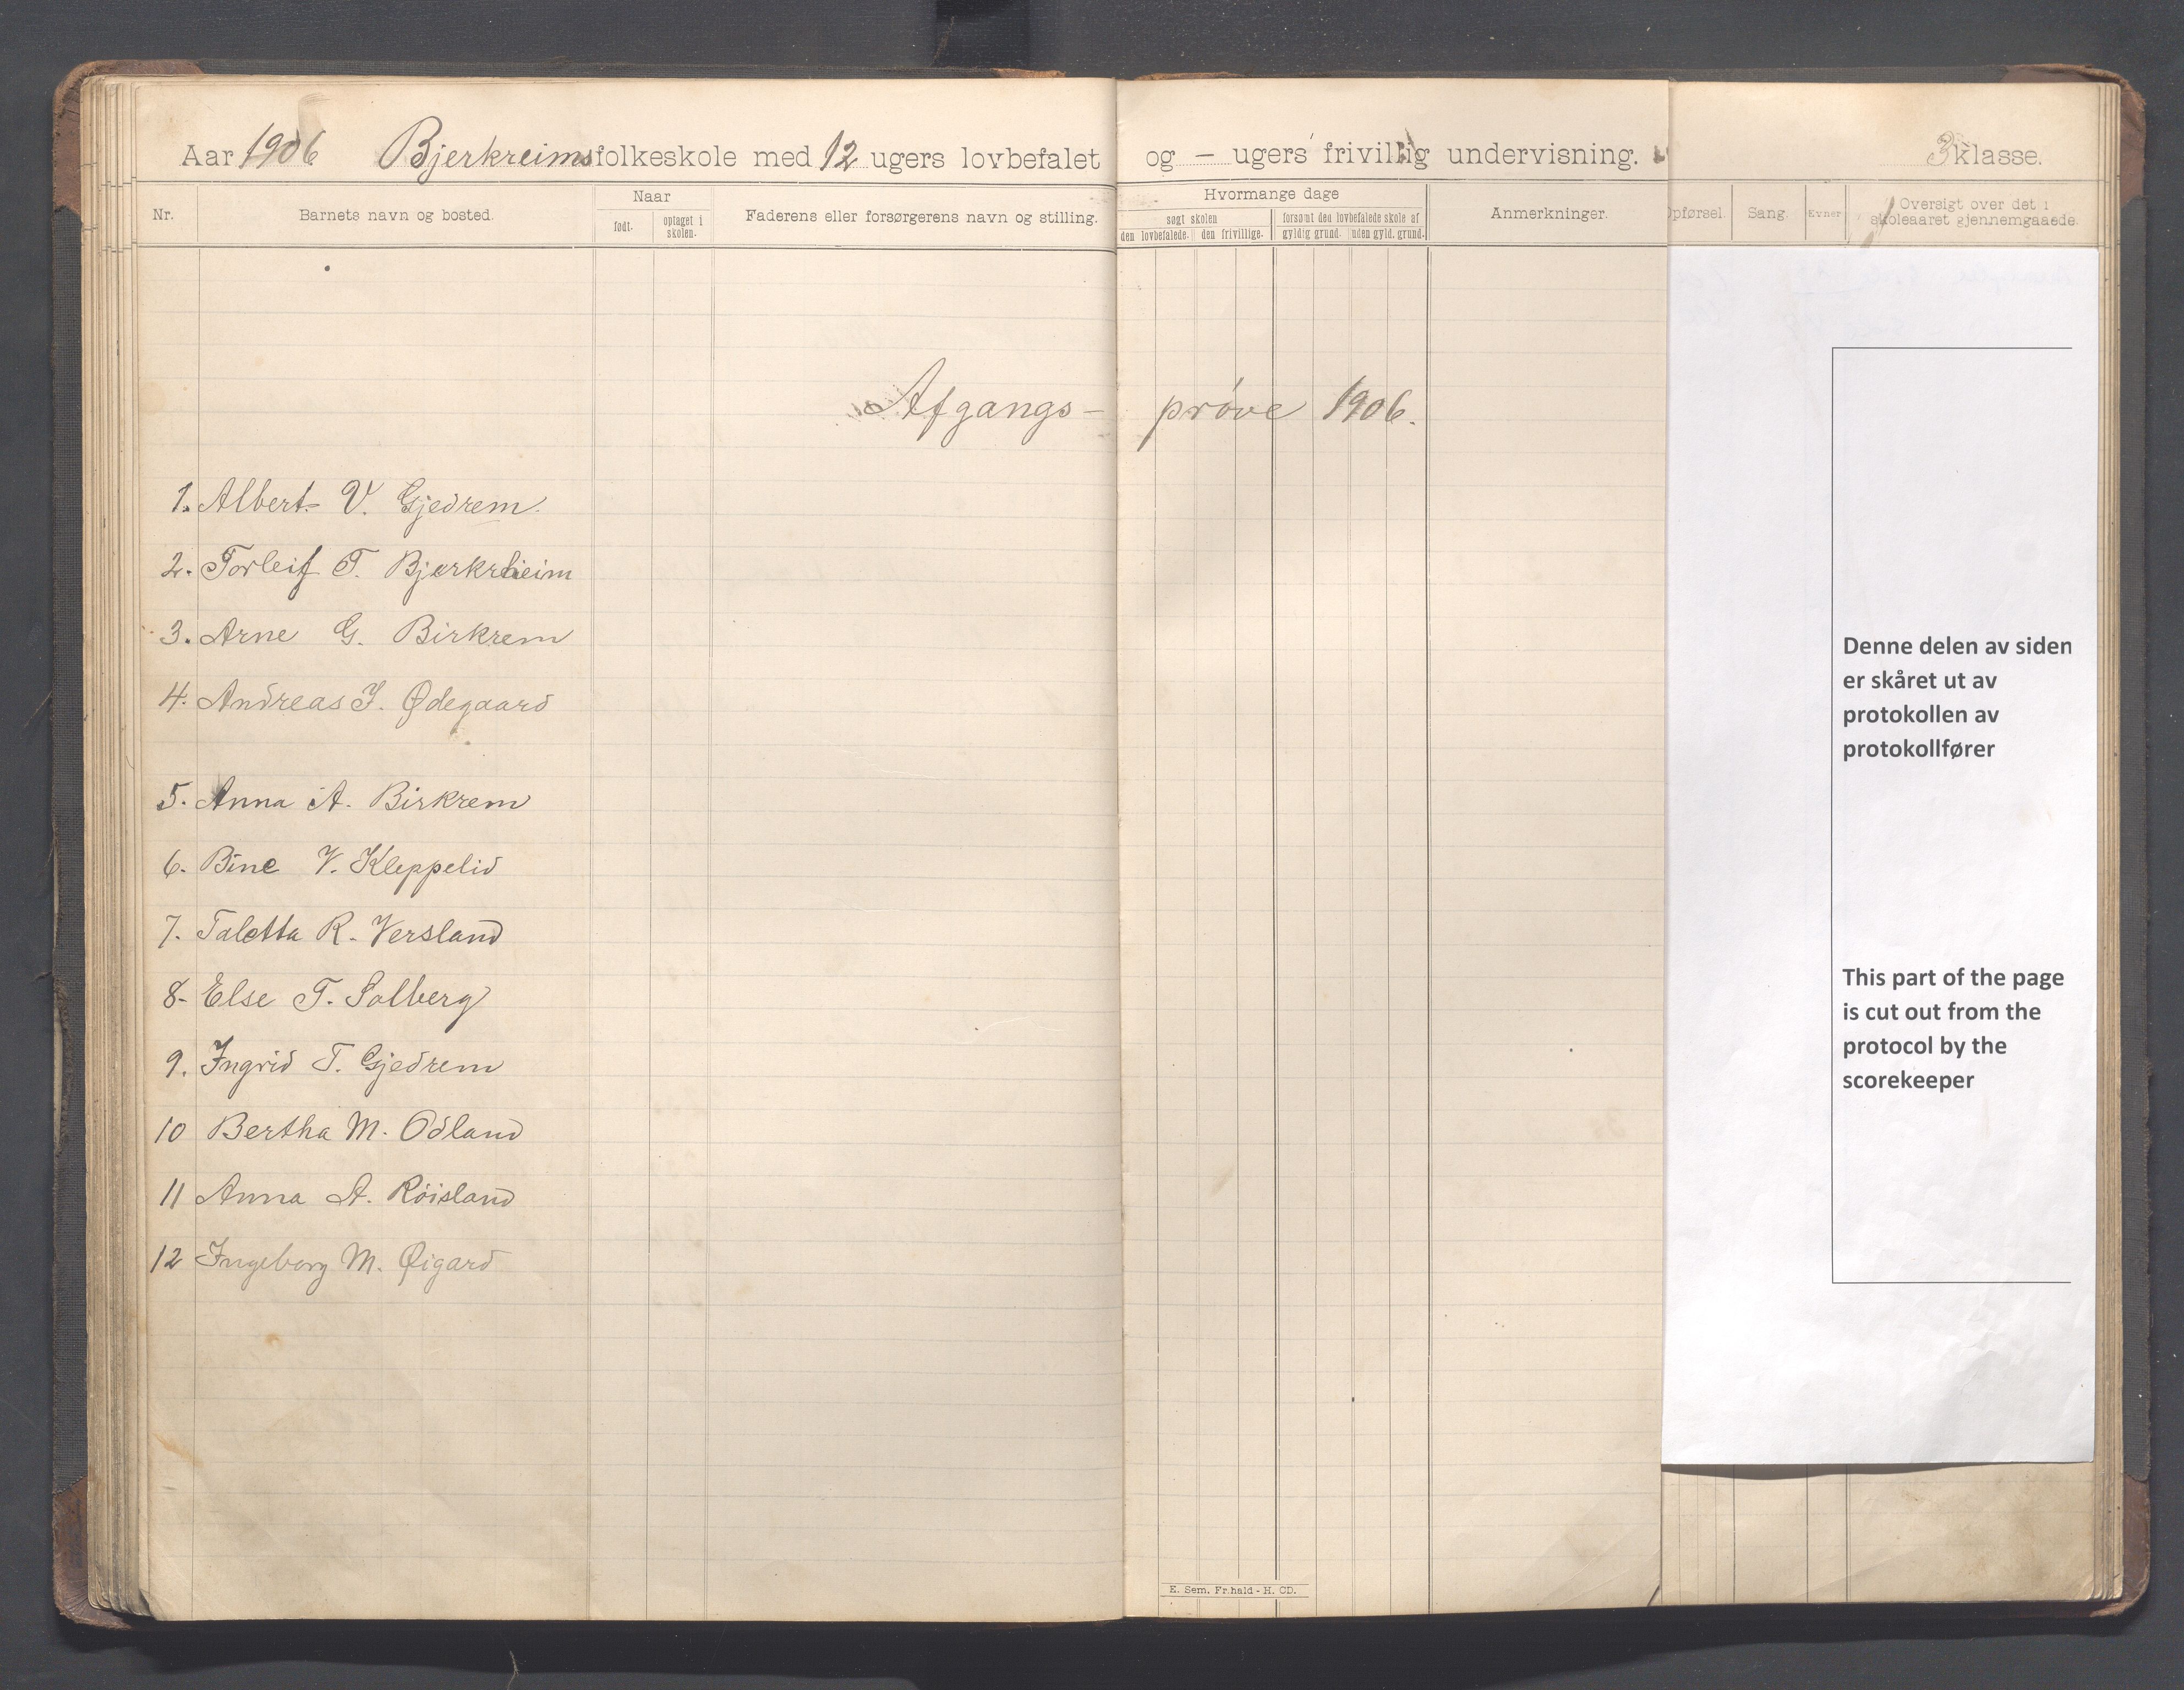 Aar 1906 Bjerkreims folkeskole med 12 ugers lovbefalet og - ugers frivillig undervisning. 3 klasse.
Nr.
Barnets navn og bosted.
Naar
født.
optaget i skolen.
Faderens eller forsørgerens navn og stilling.
Hvormange dage
søgt skolen
forsømt den lovbefalede skole af
den lovbefalede.
den frivillige.
gyldig grund.
uden gyld. grund.
Anmerkninger.
Opførsel.
Sang.
Evner
Oversigt over det i
skoleaaret gjennemgaaede.
Afgangs- prøve 1906.
1. Albert V. Gjedrem.
2. Torleif T. Bjerkrheim
3. Arne G. Birkrem
4. Andreas J. Ødegaard
5. Anna A. Birkrem
6. Bine V. Kleppelid
7. Taletta R. Versland
8- Else T. Solberg
9. Ingrid T. Gjedrem
10 Bertha M. Odland
11 Anna A. Röisland
12 Ingeborg M. Øigard
E. Sem. Fr.hald - H. CD.
Denne delen av siden
er skåret ut av
protokollen av
protokollfører
This part of the page
is cut out from the
protocol by the
scorekeeper